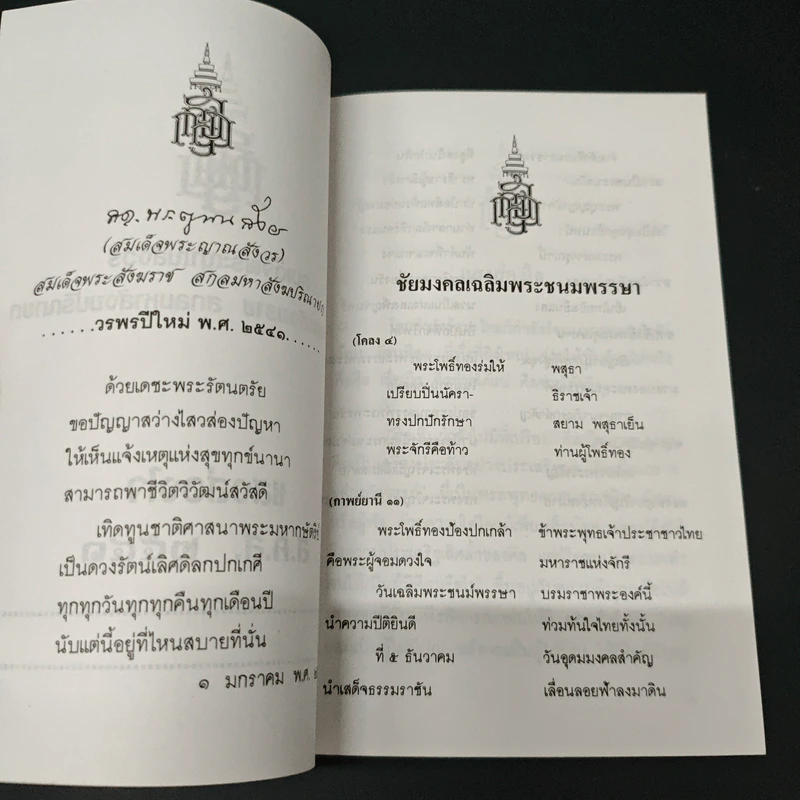 (สมเด็จพระญาณสังวร)
สมเด็จพระสังฆราช สกลมหาสังฆปริณายก
......วรพรปีใหม่ พ.ศ. ๒๕๔๑......
ด้วยเดชะพระรัตนตรัย
ขอปัญญาสว่างไสวส่องปัญหา
ให้เห็นแจ้งเหตุแห่งสุขทุกข์นานา
สามารถพาชีวิตวิวัฒน์สวัสดี
เทิดทูนชาติศาสนาพระมหากษัตริย์
เป็นดวงรัตน์เลิศดิลกปกเกศี
ทุกทุกวันทุกทุกคืนทุกเดือนปี
นับแต่นี้อยู่ที่ไหนสบายที่นั่น
๑ มกราคม พ.ศ.
ชัยมงคลเฉลิมพระชนมพรรษา
(โคลง ๔)
พระโพธิ์ทองร่มให้ พสุธา
เปรียบปิ่นนัครา- ธิราชเจ้า
ทรงปกปักรักษา สยาม พสุธาเย็น
พระจักรีคือท้าว ท่านผู้โพธิ์ทอง
(กาพย์ยานี ๑๑)
พระโพธิ์ทองป้องปกเกล้า ข้าพระพุทธเจ้าประชาชาวไทย
คือพระผู้จอมดวงใจ มหาราชแห่งจักรี
วันเฉลิมพระชนม์พรรษา บรมราชาพระองค์นี้
นำความปีติยินดี ท่วมท้นใจไทยทั้งนั้น
ที่ ๕ ธันวาคม วันอุดมมงคลสำคัญ
นำเสด็จธรรมราชัน เลื่อนลอยฟ้าลงมาดิน